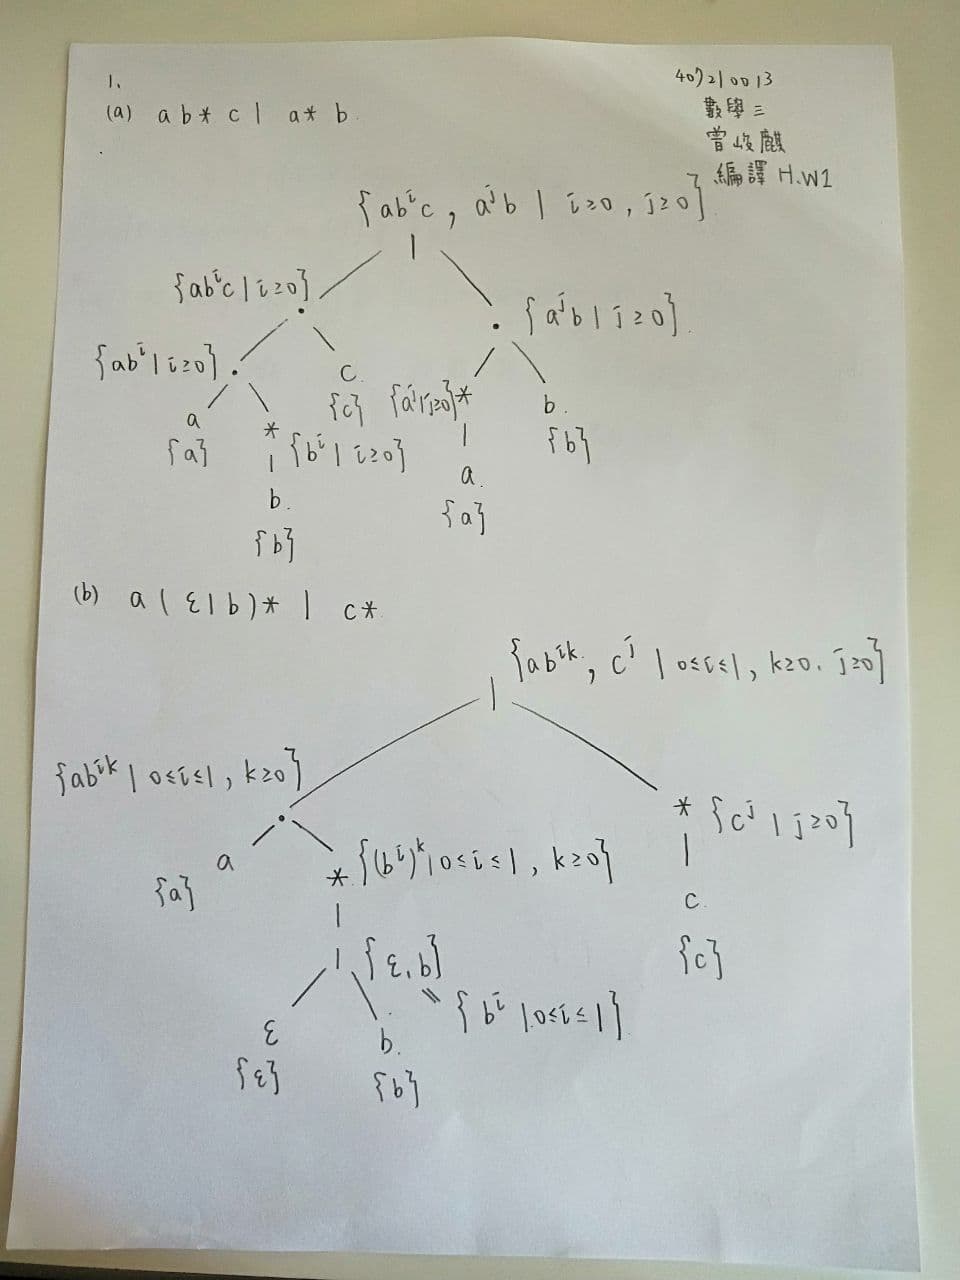 1.
(a) a b * c | a * b
407210013
數學三
曾峻麒
編譯 H.W1
{abⁱc , aʲb | i≥0 , j≥0}
|
{abⁱc | i≥0}
·
· {aʲb | j≥0}
{abⁱ | i≥0} ·
c
{c}
{aʲ | j≥0} *
b
{b}
a
{a}
* {bⁱ | i≥0}
b
{b}
a
{a}
(b) a ( ε | b ) * | c *
{abⁱᵏ , cʲ | 0≤i≤1 , k≥0 , j≥0}
|
{abⁱᵏ | 0≤i≤1 , k≥0}
·
* {cʲ | j≥0}
c
{c}
a
{a}
* {(bⁱ)ᵏ | 0≤i≤1 , k≥0}
| {ε, b}
= {bⁱ | 0≤i≤1}
ε
{ε}
b
{b}